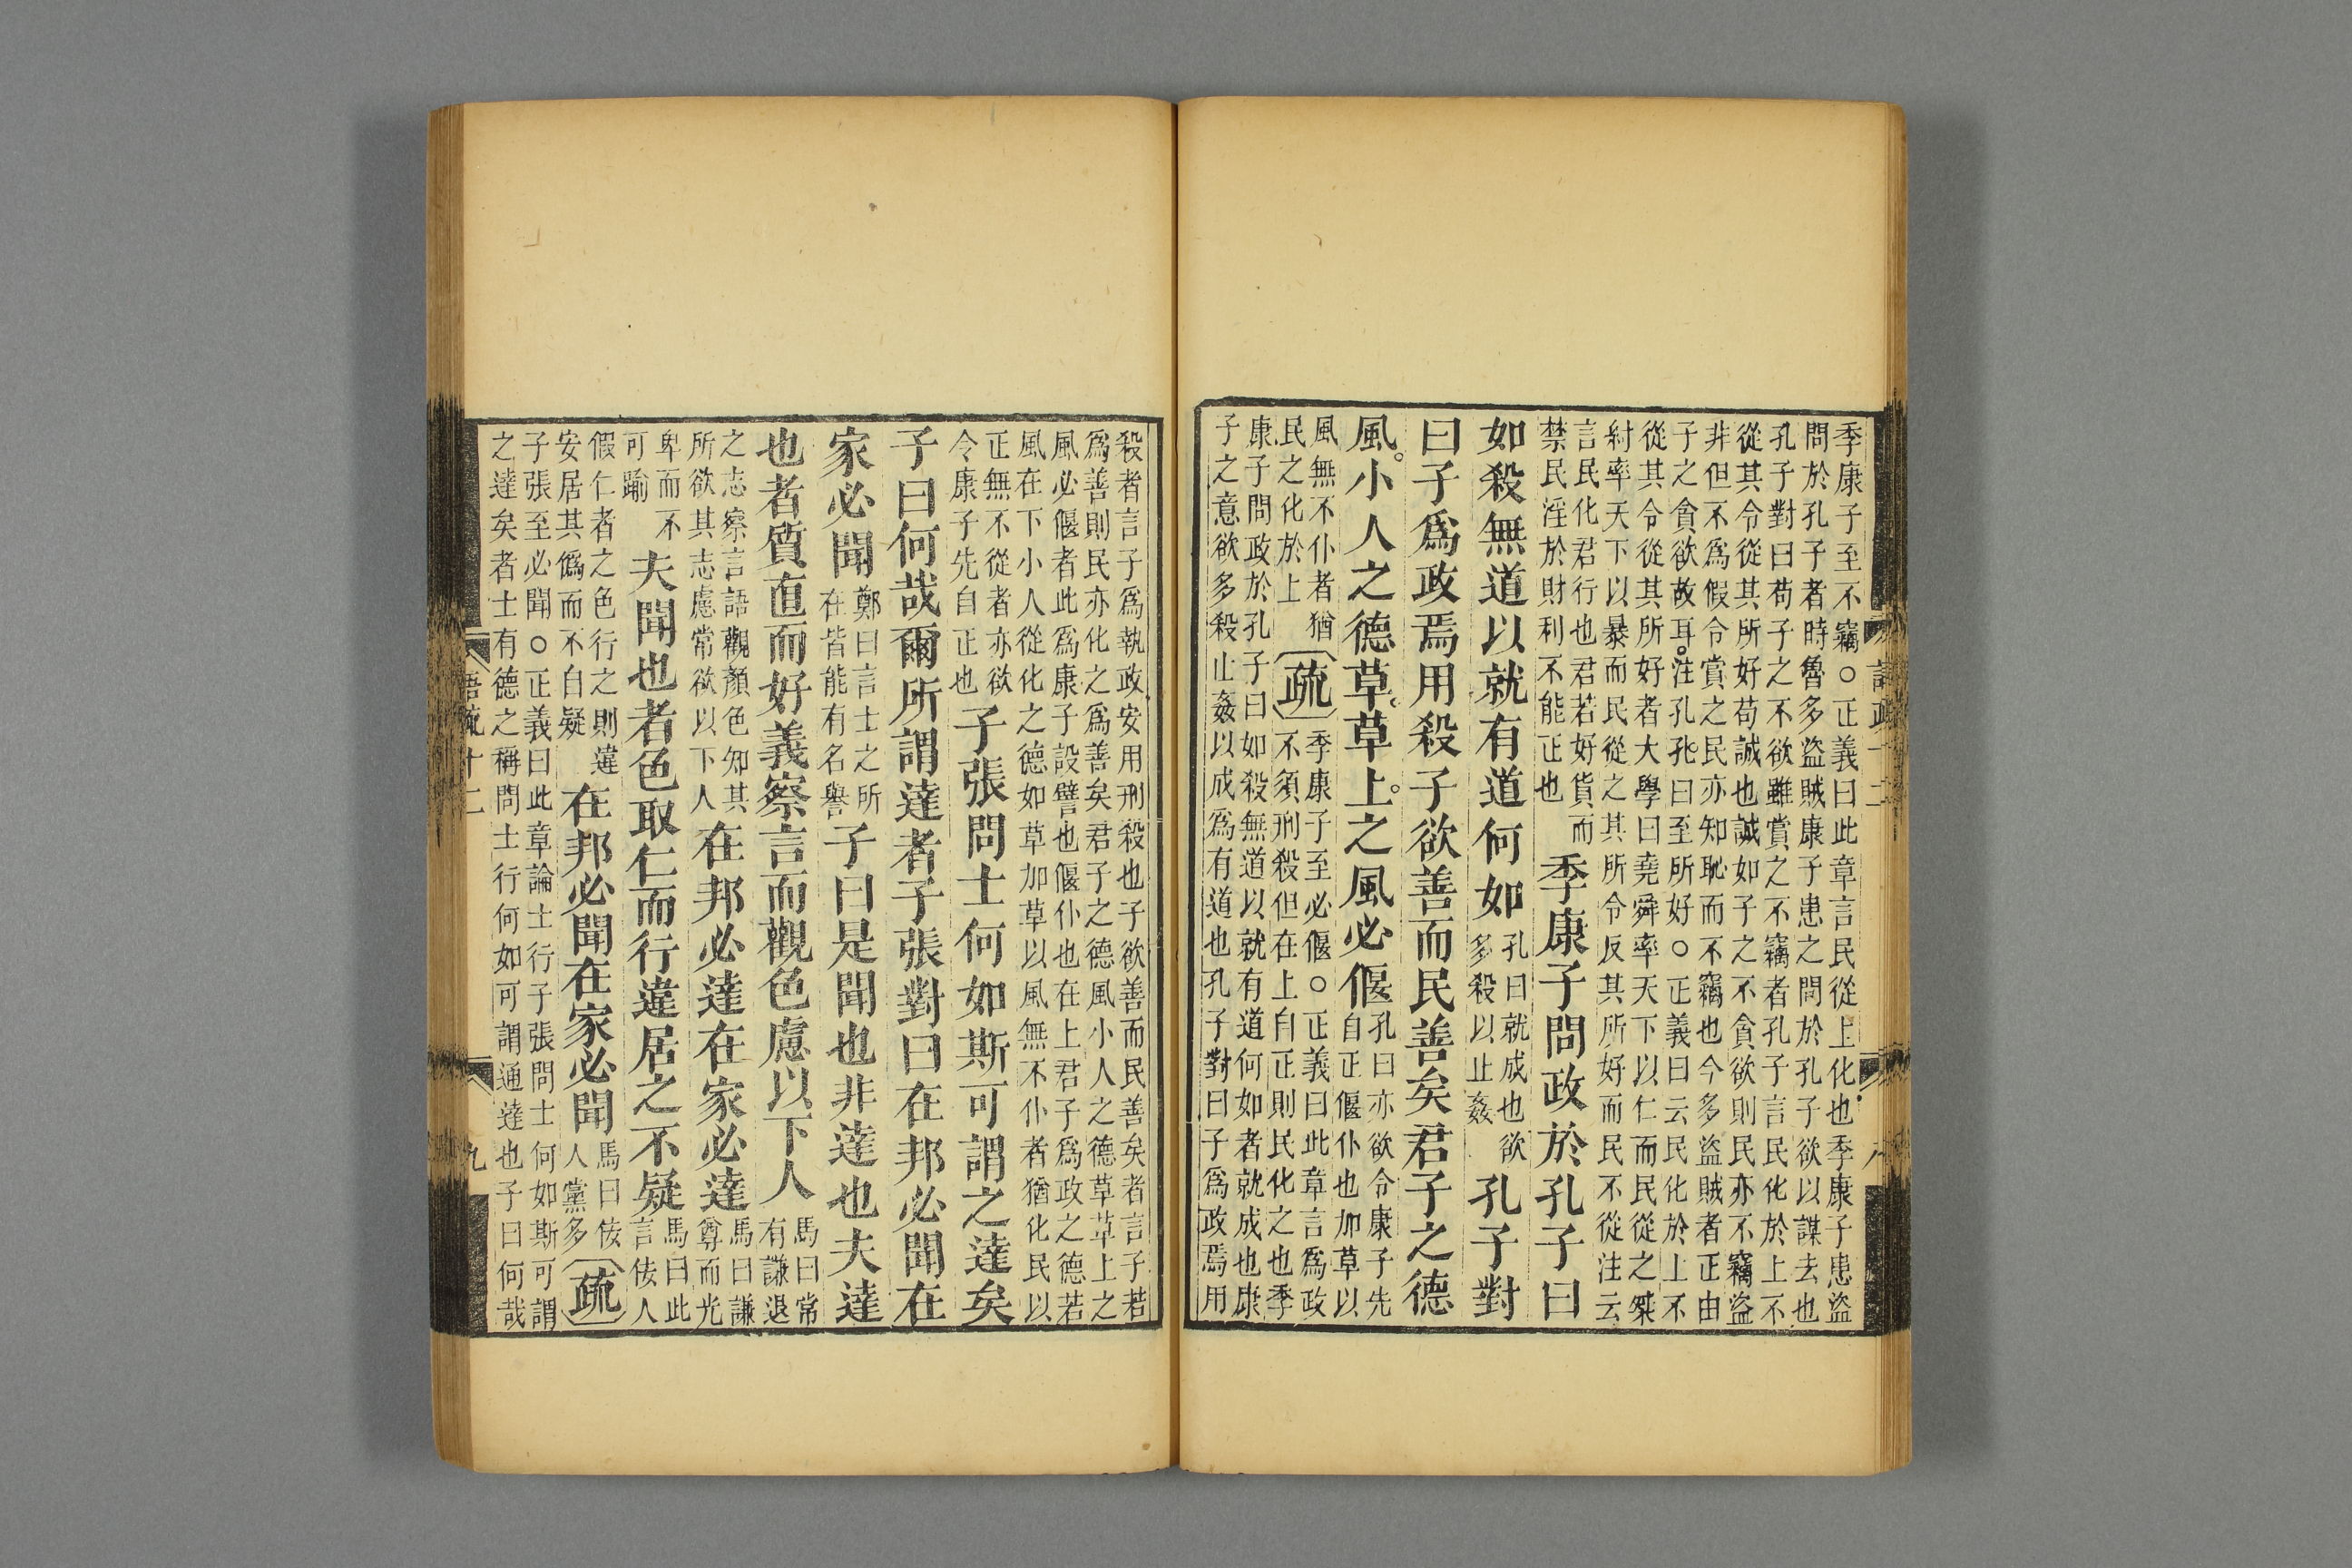 季康子至不竊○正義曰此章言民從上化也季康子患盜
問於孔子者時魯多盜賊康子患之問於孔子欲以謀去也
孔子對曰苟子之不欲雖賞之不竊者孔子言民化於上不
從其令從其所好苟誠也誠如子之不貪欲則民亦不竊盜
非但不爲假令賞之民亦知恥而不竊也今多盜賊者正由
子之貪欲故耳。注孔孔曰至所好○正義曰云民化於上不
從其令從其所好者大學曰堯舜率天下以仁而民從之桀
紂率天下以暴而民從之其所令反其所好而民不從注云
言民化君行也君若好貨而
禁民淫於財利不能正也
季康子問政於孔子曰
如殺無道以就有道何如
孔曰就成也欲
多殺以止姦
孔子對
曰子爲政焉用殺子欲善而民善矣君子之德
風。小人之德草。草上。之風必偃
孔曰亦欲令康子先
自正偃仆也加草以
風無不仆者猶
民之化於上
疏
季康子至必偃○正義曰此章言爲政
不須刑殺但在上自正則民化之也季
康子問政於孔子曰如殺無道以就有道何如者就成也康
子之意欲多殺止姦以成爲有道也孔子對曰子爲政焉用
殺者言子爲執政安用刑殺也子欲善而民善矣者言子若
爲善則民亦化之爲善矣君子之德風小人之德草草上之
風必偃者此爲康子設譬也偃仆也在上君子爲政之德若
風在下小人從化之德如草加草以風無不仆者猶化民以
正無不從者亦欲
令康子先自正也
子張問士何如斯可謂之達矣
子曰何哉爾所謂達者子張對曰在邦必聞在
家必聞
鄭曰言士之所
在皆能有名譽
子曰是聞也非達也夫達
也者質直而好義察言而觀色慮以下人
馬曰常
有謙退
之志察言語觀顏色知其
所欲其志慮常欲以下人
在邦必達在家必達
馬曰謙
尊而光
卑而不
可踰
夫聞也者色取仁而行違居之不疑
馬曰此
言佞人
假仁者之色行之則違
安居其僞而不自疑
在邦必聞在家必聞
馬曰佞
人黨多
疏
子張至必聞○正義曰此章論士行子張問士何如斯可謂
之達矣者士有德之稱問士行何如可謂通達也子曰何哉
語疏十二
九